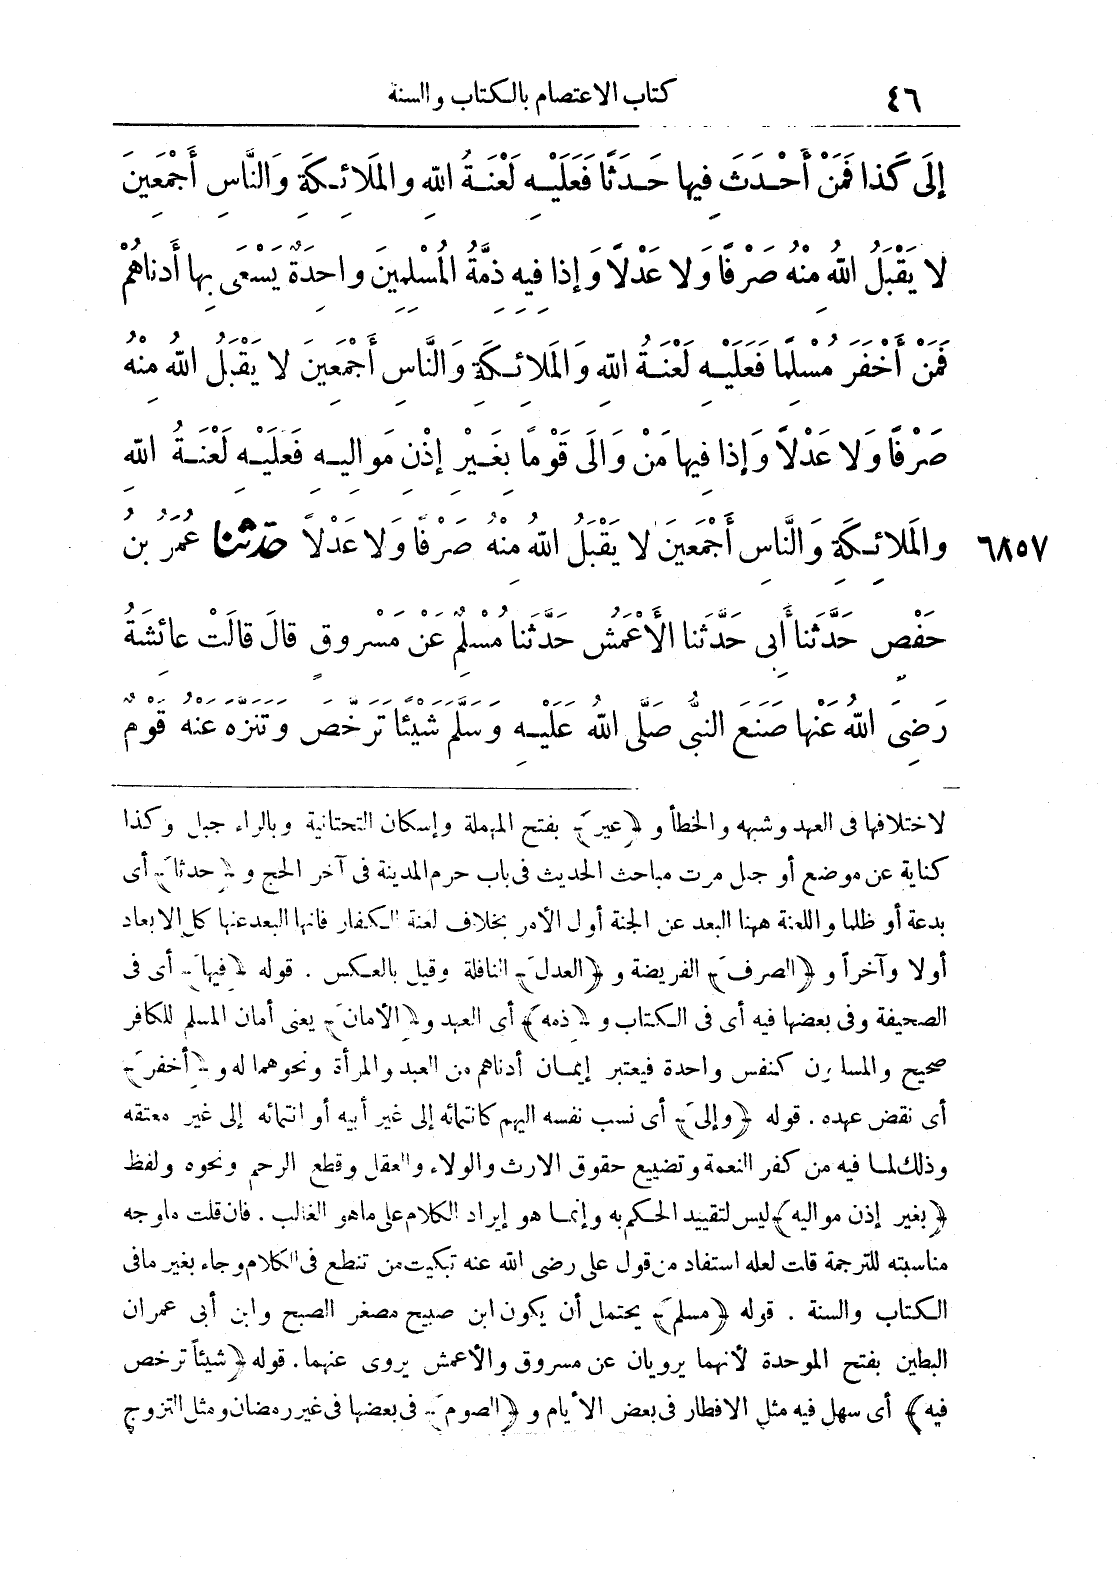 ٤٦ كتاب الاعتصام بالكتاب والسنة
إِلَى كَذَا فَمَنْ أَحْدَثَ فِيهَا حَدَثًا فَعَلَيْهِ لَعْنَةُ اللَّهِ والمَلَائِكَةِ وَالنَّاسِ أَجْمَعِينَ
لا يَقْبَلُ اللَّهُ مِنْهُ صَرْفًا وَلا عَدْلًا وَإِذا فِيهِ ذِمَّةُ المُسْلِمِينَ واحِدَةٌ يَسْعَى بِها أَدناهُمْ
فَمَنْ أَخْفَرَ مُسْلِمًا فَعَلَيْهِ لَعْنَةُ اللَّهِ وَالمَلَائِكَةِ وَالنَّاسِ أَجْمَعِينَ لا يَقْبَلُ اللَّهُ مِنْهُ
صَرْفًا وَلا عَدْلًا وَإِذا فِيهَا مَنْ وَالَى قَوْمًا بِغَيْرِ إِذْنِ مَوالِيهِ فَعَلَيْهِ لَعْنَةُ اللَّهِ
٦٨٥٧ والمَلَائِكَةِ وَالنَّاسِ أَجْمَعِينَ لا يَقْبَلُ اللَّهُ مِنْهُ صَرْفًا وَلا عَدْلًا حَدَّثَنَا عُمَرُ بنُ
حَفْصٍ حَدَّثَنا أَبِي حَدَّثَنا الأَعْمَشُ حَدَّثَنا مُسْلِمٌ عَنْ مَسْرُوقٍ قالَ قالَتْ عائِشَةُ
رَضِيَ اللَّهُ عَنْها صَنَعَ النبيُّ صَلَّى اللَّهُ عَلَيْهِ وَسَلَّمَ شَيْئًا تَرَخَّصَ وَتَنَزَّهَ عَنْهُ قَوْمٌ
لاختلافها فى العهد وشبهه والخطأ و ﴿عير﴾ بفتح المهملة وإسكان التحتانية وبالراء جبل وكذا
كناية عن موضع أو جبل مرت مباحث الحديث فى باب حرم المدينة فى آخر الحج و ﴿حدثا﴾ أى
بدعة أو ظلما واللعنة ههنا البعد عن الجنة أول الأمر بخلاف لعنة الكفار فانها البعد عنها كل الابعاد
أولا وآخراً و ﴿الصرف﴾ الفريضة و ﴿العدل﴾ النافلة وقيل بالعكس . قوله ﴿فيها﴾ أى فى
الصحيفة وفى بعضها فيه أى فى الكتاب و ﴿ذمه﴾ أى العهد و ﴿الأمان﴾ يعنى أمان المسلم للكافر
صحيح والمسلمون كنفس واحدة فيعتبر إيمان أدناهم من العبد والمرأة ونحوهما له و ﴿أخفر﴾
أى نقض عهده . قوله ﴿وإلى﴾ أى نسب نفسه اليهم كانتمائه إلى غير أبيه أو انتمائه إلى غير معتقه
وذلك لما فيه من كفر النعمة وتضييع حقوق الارث والولاء والعقل وقطع الرحم ونحوه ولفظ
﴿بغير إذن مواليه﴾ ليس لتقييد الحكم به وإنما هو إيراد الكلام على ما هو الغالب . فان قلت ما وجه
مناسبته للترجمة قلت لعله استفاد من قول على رضى الله عنه تبكيت من تنطع فى الكلام وجاء بغير ما فى
الكتاب والسنة . قوله ﴿مسلم﴾ يحتمل أن يكون ابن صبيح مصغر الصبح وابن أبى عمران
البطين بفتح الموحدة لأنهما يرويان عن مسروق والأعمش يروى عنهما . قوله ﴿شيئاً ترخص
فيه﴾ أى سهل فيه مثل الافطار فى بعض الأيام و ﴿الصوم﴾ فى بعضها فى غير رمضان ومثل التزوج